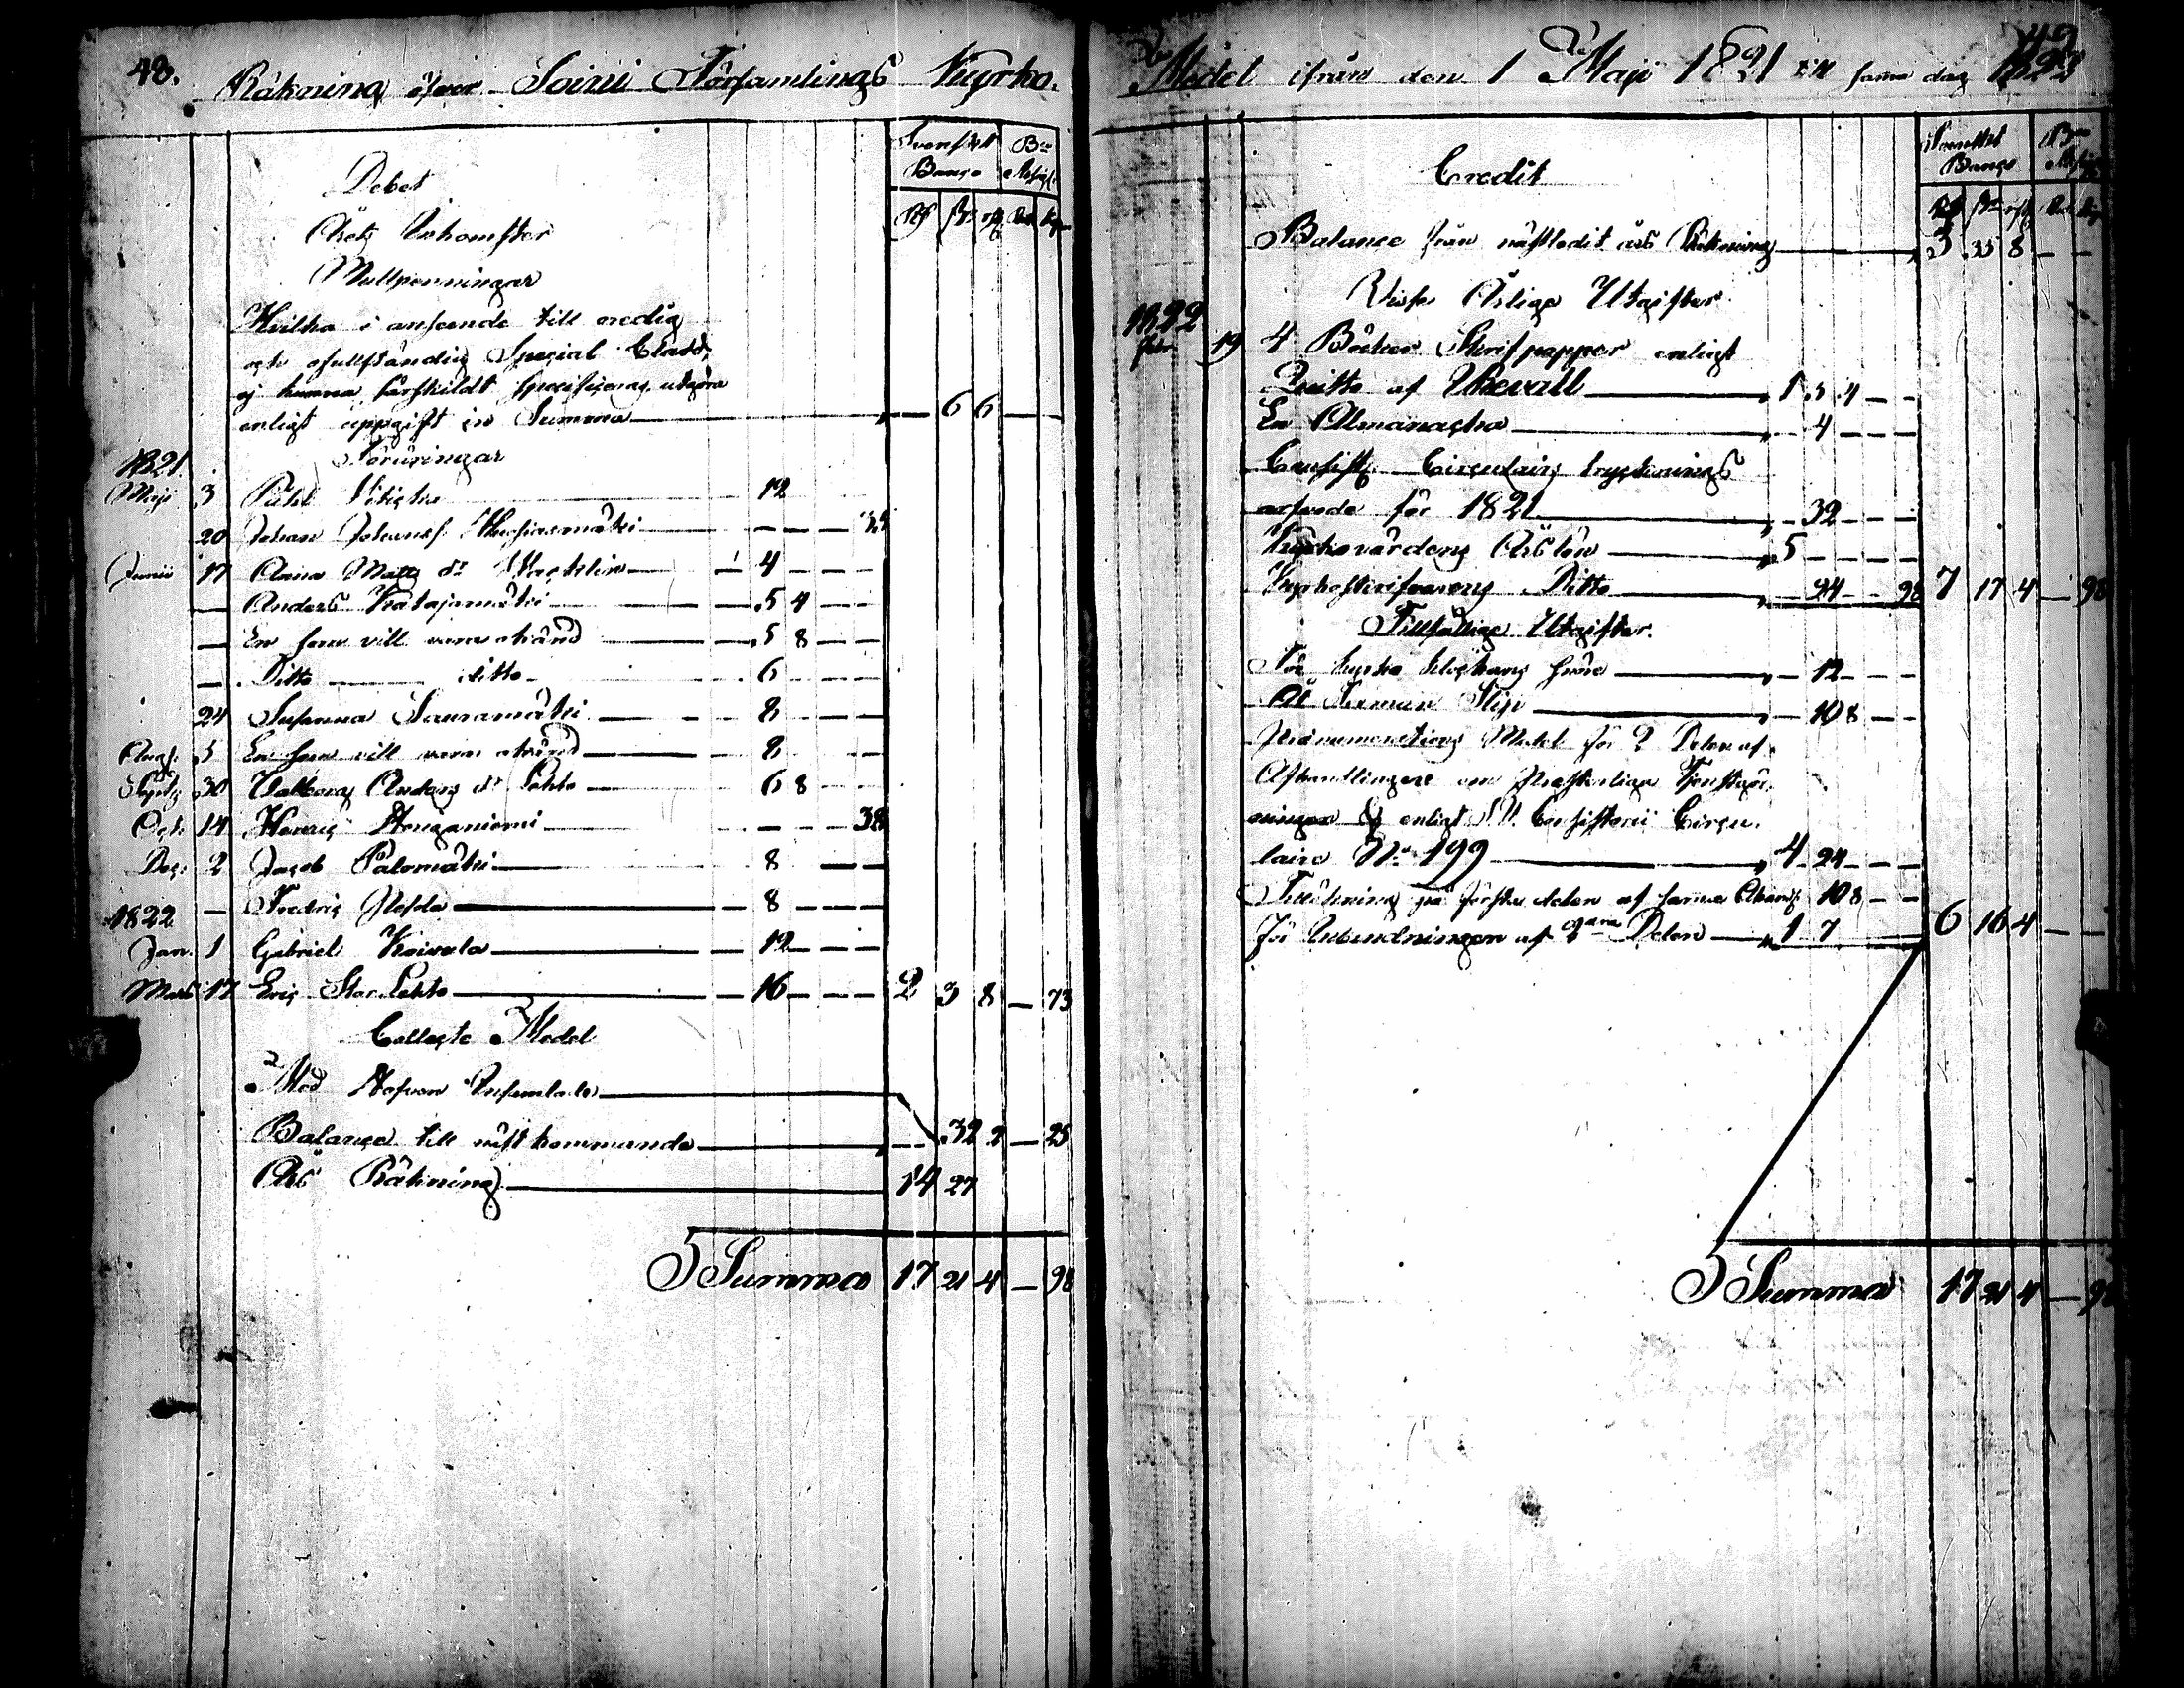 48.
Räkning öfver Soini Församlings Kyrko.
Svenskt Banco Bco
Debet
Rd sk rst
Årets Inkomster
Mullpenningar
Hvilka i anseende till oredig
och ofullständig Special Cladd,
ej kunna särskildt specificeras, utgöra
enligt uppgift in Summa — 6 6 — —
1821. Föräringar
Maji 3 12
20 Johan Johansf.
Junii 17 Anna Matts dr — 4 — — —
— Anders Katajamäki — 5 4 — —
— En som vill vara okänd — 5 8 — —
— Ditto — ditto — 6 — — —
24 Susanna Sauramäki — 8 — — —
Aug. 5 En som vill vara okänd — 8 — —
30 Valborg Anders dr Lehto — 6 8 — —
Oct. 14 — — — 38
Dec. 2 Jacob Palomäki — 8 — —
1822 — Fredric — 8 — — —
Jan. 1 Gabriel Koivula — 12 — — —
Mars 17 Eric Stor Lehto — 16 — — — 2 3 8 — 73
Collecte Medel
Med Hofven Insamlade
Balance till nästkommande — 32 2 — 25
Års Räkning — 14 27
Summa 17 21 4 — 98
49
Medel ifrån den 1 Maji 1821 till samma dag 1822
Svenskt Banco Bco
Credit
Rd sk rst
Balance från nästledit års Räkning — 3 35 8 — —
Visse Årlige Utgifter
1822
Febr. 19 4 Böcker Skrifpapper enligt
Quitto af — 1 5 4 — —
En Almanacka — 4 — — —
Consist. Circulairs trycknings
arfvode för 1821 — 32 — — —
Kyrkovärdens Årslön — 5 — — — —
Kyrkoskrifvarens Ditto — 24 — — 98 7 17 4 — 98
Tillfällige Utgifter.
För kyrko klockans — 12 — — —
— 10 8 — —
Prænumerations Medel för 2 Delen af
Afhandlingen om Presterliga Tjenstgör-
ningen enligt V. Consistorii Circu-
laire No 199 — 4 24 — — —
Tillökning på första delen af samma 10 8 — —
För Inbindningen af Delen — 1 7 — 6 16 4 — —
Summa 17 21 4 — 98